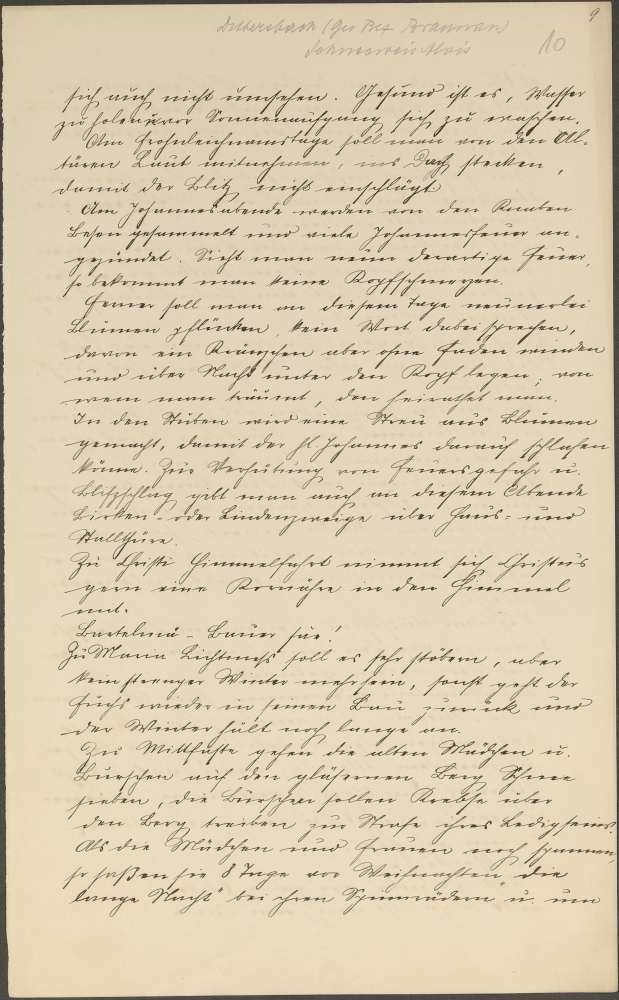 9
Dittersbach (Ger Bez Braunau)
10
sich auch nicht umsehen. Gesund ist es, Wasser
zu holen u. vor Sonnenaufgang sich zu waschen.
Am Frohnleichnamstage soll man von den Al-
tären Laub mitnehmen, ins Dach stecken,
damit der Blitz nicht einschlägt
Am Johannesabende werden von den Knaben
Besen gesammelt und viele Johannesfeuer an-
gezündet. Sieht man neun derartige Feuer,
so bekommt man keine Kopfschmerzen.
Ferner soll man an diesem Tage neunerlei
Blumen pflücken, kein Wort dabei sprechen,
davon ein Kränzchen aber ohne Faden winden
und über Nacht unter den Kopf legen; von
wem man träumt, den heirathet man.
In den Stuben wird eine Streu aus Blumen
gemacht, damit der hl. Johannes darauf schlafen
könne. Zur Verhütung von Feuersgefahr u.
Blitzschlag gibt man auch an diesem Abende
Birken- oder Lindenzweige über Haus- und
Stallthüre.
Zu Christi Himmelfahrt nimmt sich Christus
gern eine Kornähre in den Himmel
mit.
Bartelmä - Bauer säe!
Zu Maria Lichtmess soll es sehr stöbern, aber
kein strenger Winter mehr sein, sonst geht der
Fuchs wieder in seinen Bau zurück und
der Winter hält noch lange an.
Zu Mittfaste gehen die alten Mädchen u.
Burschen auf den gläsernen Berg Schnee
sieben, die Burschen sollen Krebse über
den Berg treiben zur Strafe ihres Ledigseins.
Als die Mädchen und Frauen noch spannen,
so saßen sie 8 Tage vor Weihnachten "die
lange Nacht" bei ihren Spinnrädern u. um